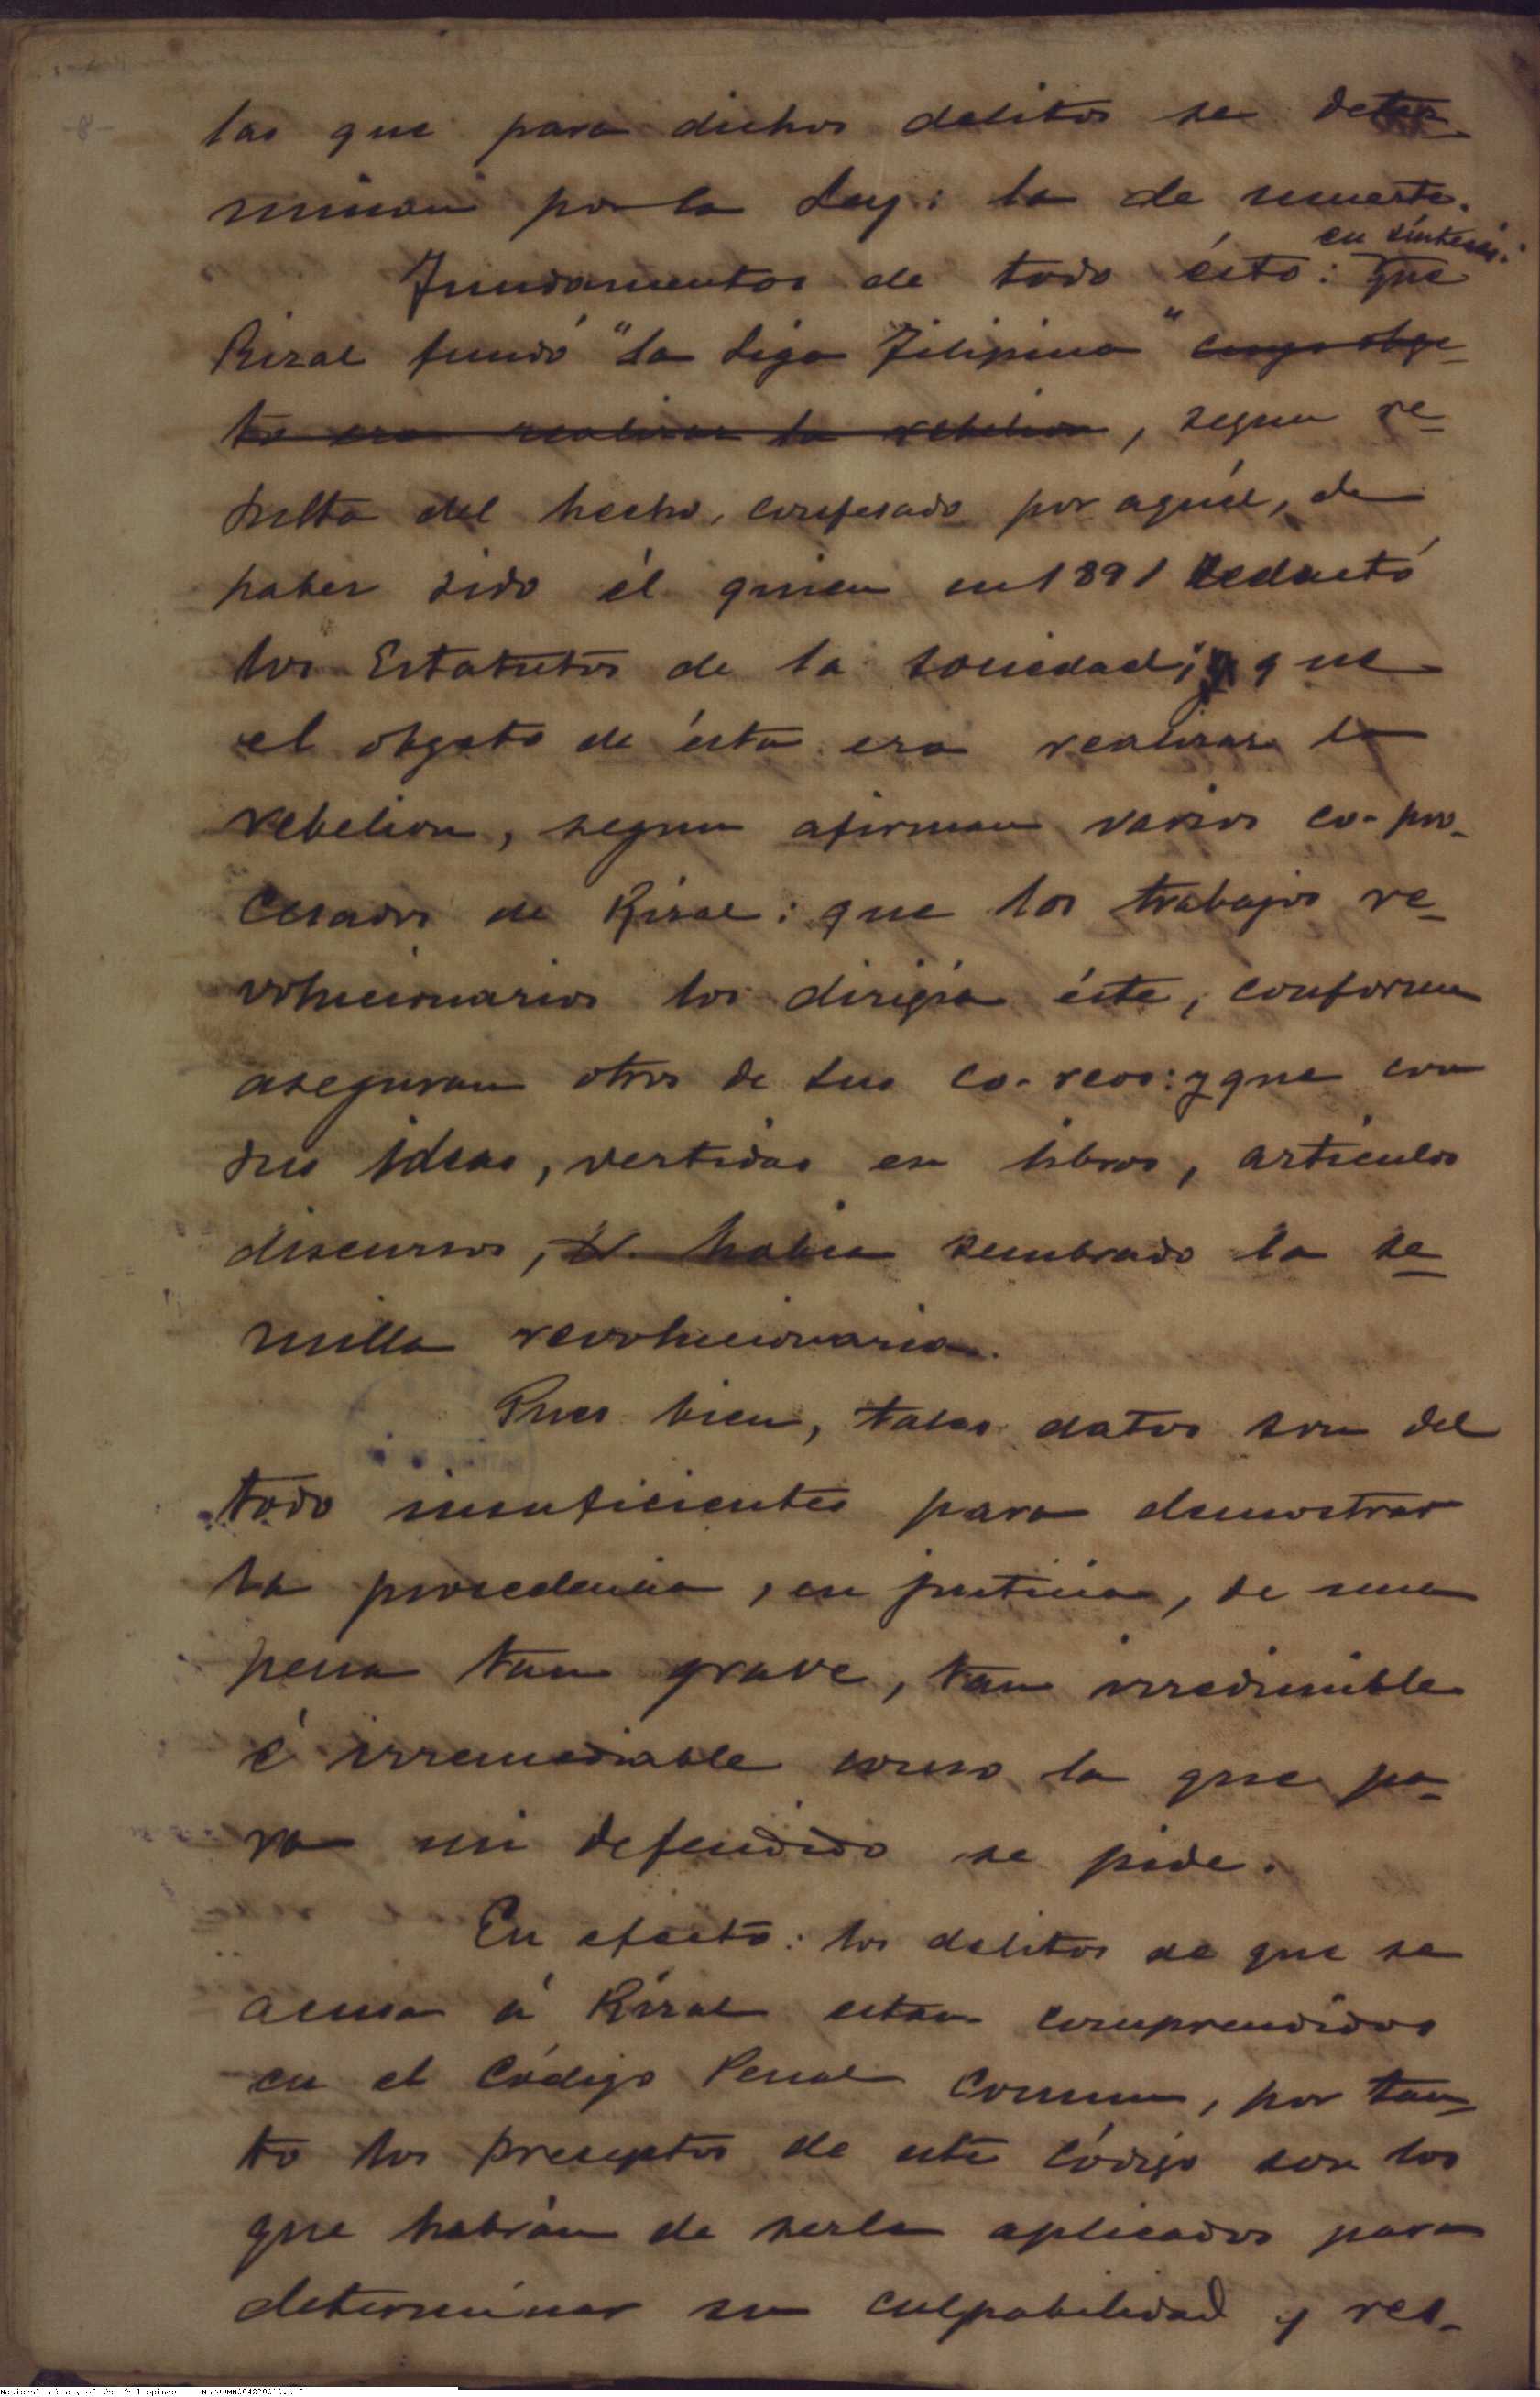 las que para dichos delitos se deter-
minan por la Ley: la de muerte.
en síntesis:
Fundamentos de todo ésto: que
Rizal fundó "La Liga Filipina" cuyo obge-
to era realizar la rebelion, segun re-
sulta del hecho, confesado por aquél, de
haber sido él quien en 1891 redactó
los Estatutos de la sociedad; y que
el obgeto de ésta era realizar la
rebelion, segun afirman varios co-pro-
cesados de Rizal: que los trabajos re-
volucionarios los dirigía éste, conforme
aseguran otros de sus co-reos: y que con
sus ideas, vertidas en libros, artículos
discursos, había sembrado la se-
milla revolucionaria.
Pues bien, tales datos son del
todo insuficientes para demostrar
la procedencia, en justicia, de una
pena tan grave, tan irredimible
é irremediable como la que pa-
ra mi defendido se pide.
En efecto: los delitos de que se
acusa á Rizal estan comprendidos
en el Código Penal comun, por tan-
to los preceptos de este Código son los
que habrán de serle aplicados para
determinar su culpabilidad y res-